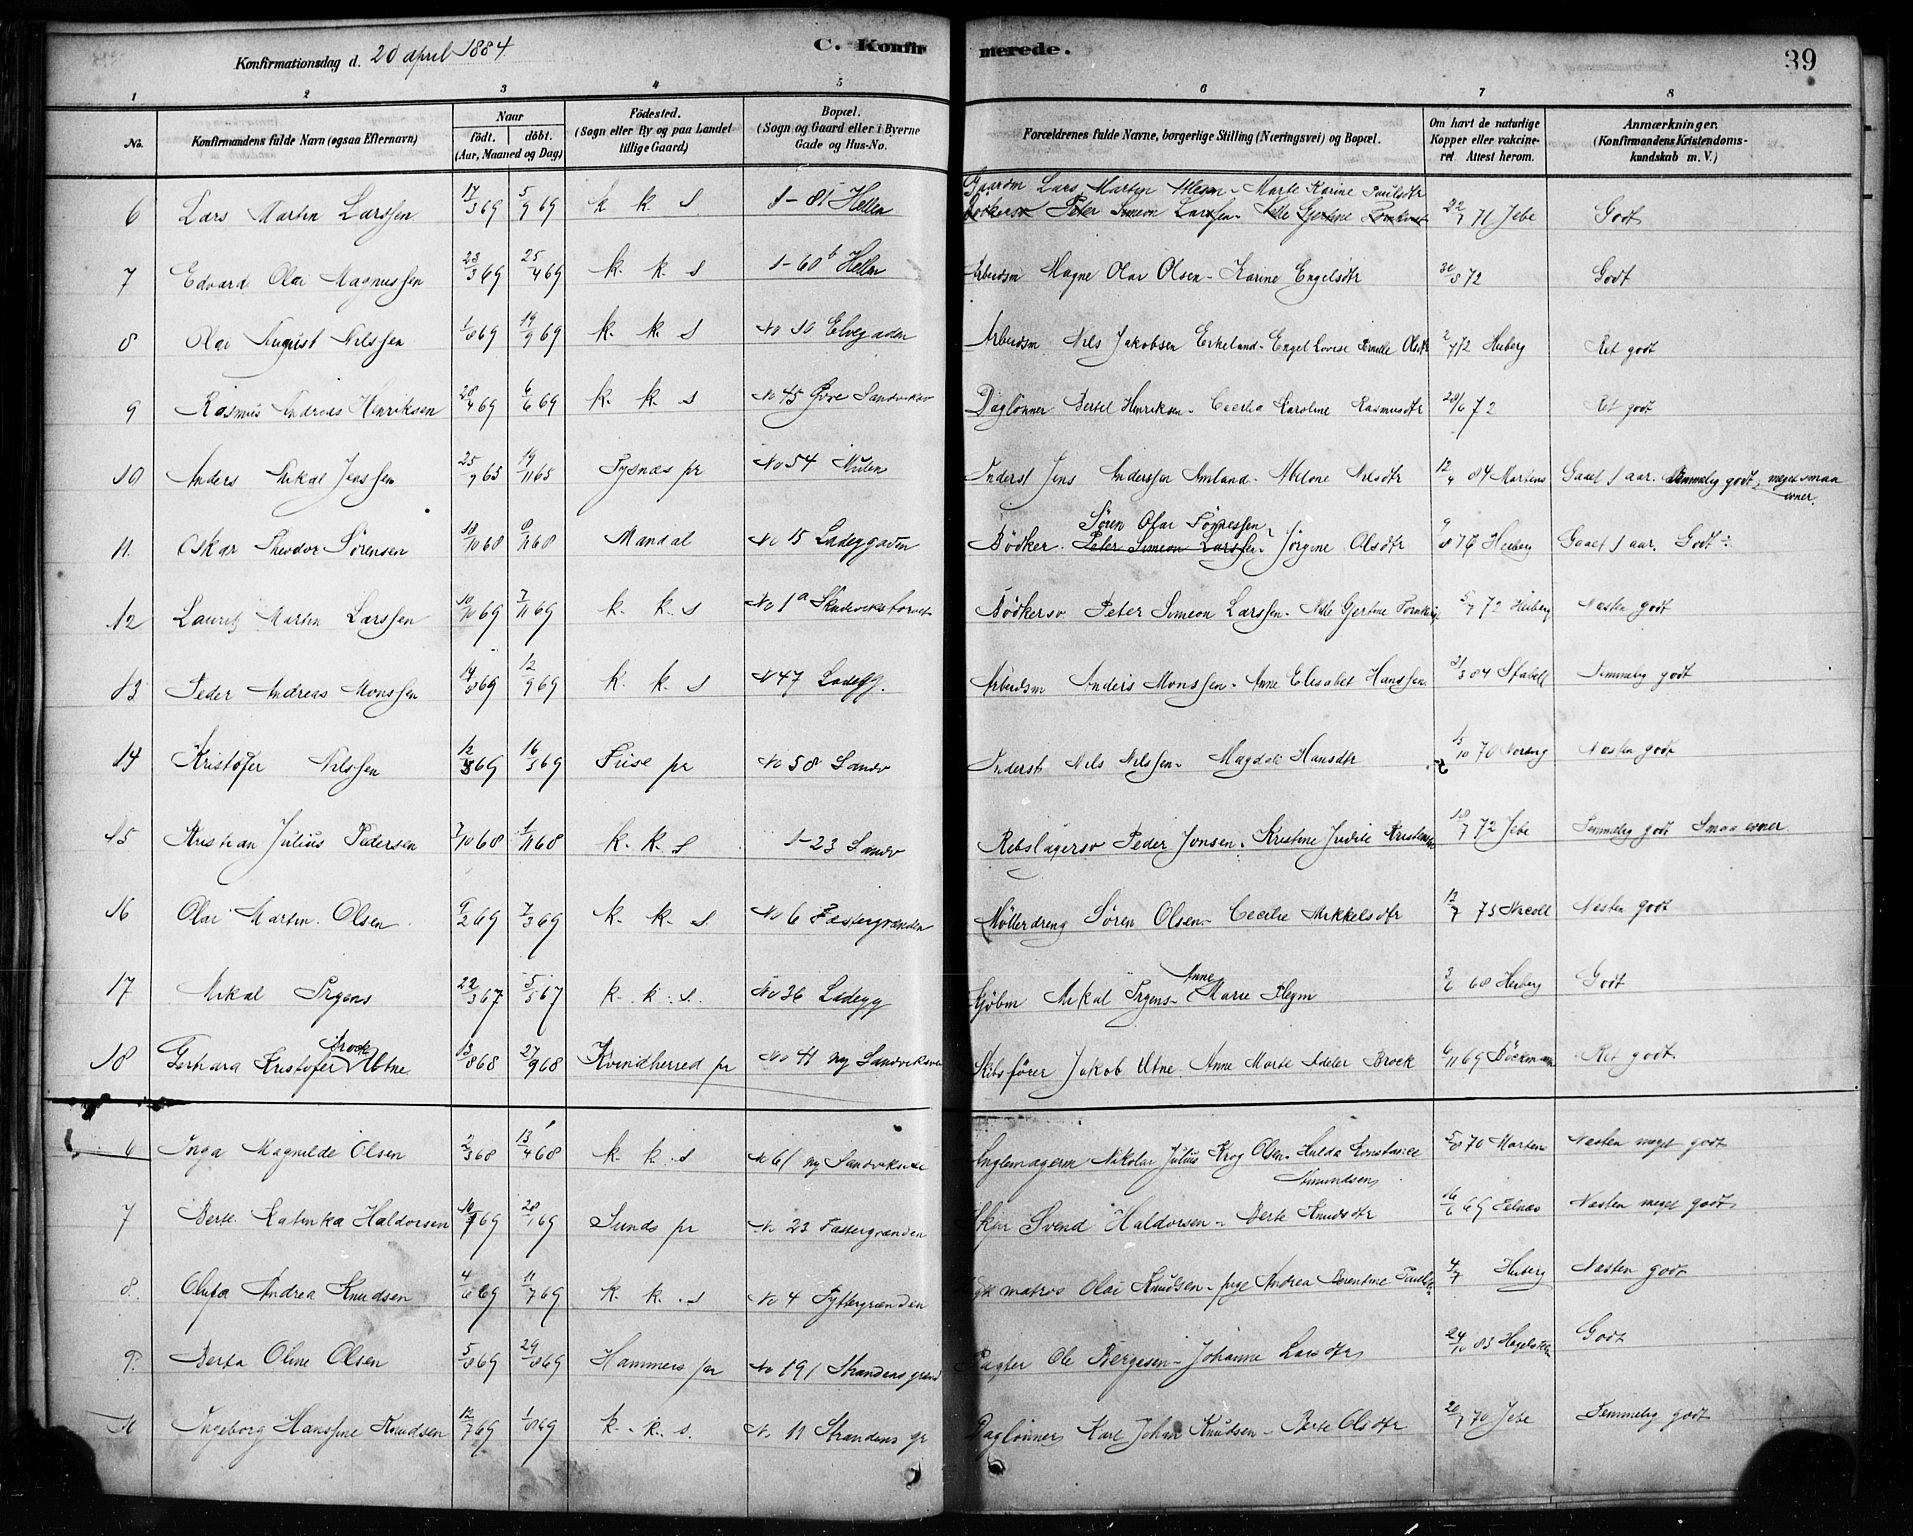 Konfirmationsdag d. 20 april 1884.
C. Konfirmerede.
39
1 2 3 4 5 6 7 8
No. Konfirmandens fulde Navn (ogsaa Efternavn) Naar födt. döbt. (Aar, Maaned og Dag) Födested. (Sogn eller By og paa Landet tillige Gaard) Bopæl. (Sogn og Gaard eller i Byerne Gade og Hus-No. Forældrenes fulde Navne, borgerlige Stilling (Næringsvei) og Bopæl. Om havt de naturlige Kopper eller vakcineret. Attest herom. Anmærkninger. (Konfirmandens Kristendomskundskab m. V.)
6 Lars Martin Larssen 17/3 69 5/9 69 k k s 1-81 Hellen Gaardm Lars Martin Marte Karine Paulsdtr 22/7 71 Jebe Godt
Peter Simeon Larssen Gjertine
7 Edvard Olai Magnussen 23/3 69 25/4 69 k. k s 1-60b Hellen Arbeidsm Magne Olai Olsen - Karine Engelsdtr 30/8 72 Godt
8 Olai August Nilssen 1/8 69 19/9 69 k. k s No 10 Elvegaden Arbeidsm Nils Jakobsen Eikeland - Engel Lovise Pernille Olsdtr 2/7 72 Heiberg Ret godt
9 Rasmus Andreas Henriksen 28/4 69 6/6 69 k k s No 45 Øvre Sandviksv Daglönner Bertel Henriksen - Cecilia Karoline Rasmusdtr 28/6 72 Ret godt
10 Anders Mikal Jenssen 25/9 65 19/11 65 Tysnæs pr No 54 Mulen Inderst Jens Anderssen Amland - Abelone Nilsdtr 12/4 84 Martens Gaaet 1 aar. Temmelig godt, meget smaa
evner
Sören Olai Tönnessen
11. Oskar Theodor Sörensen 18/10 68 8/11 68 Mandal No 15 Ladeggaden Bödker. Peter Simeon Larssen - Jörgine Olsdtr 9/8 76 Heiberg Gaaet 1 aar. Godt
12 Lauritz Martin Larssen 10/10 69 7/11 69 k k s No 1a Sandvikstorvet Bödkersv Peter Simeon Larssen - Gjertine 5/7 72 Heiberg Næsten godt
13 Peder Andreas Monssen 14/8 69 12/9 69 k. k. s N 47 Ladegg. Arbeidsm Anders Monssen - Anne Elisabet Hanssen 31/3 84 Stabell Temmelig godt
14 Kristofer Nilssen 12/3 69 16/5 69 Fuse pr No 58 Sandv Inderst Nils Nilssen - Magdeli Hansdtr 15/10 70 Næsten godt
15 Kristian Julius Pedersen 7/10 68 1/11 68 k. k. s 1-23 Sandv Rebslagersv Peder Jonsen - Kristine Judite 10/7 72 Jebe Temmelig godt Smaa evner
16 Olai Martin Olsen 9/2 69 7/3 69 k. k. s. No 6 Fæstergrænden Möllerdreng Sören Olsen - Cecilie Mikkelsdtr 12/7 75 Næsten godt
Anne
17 Mikal Irgens 22/3 67 5/5 67 k. k. s. No 36 Ladegg Kjöbm Mikal Irgens - Marie Fleym 3/6 68 Heiberg Godt
Brock
18 Gerhard Kristofer Utne 13/8 68 27/9 68 Kvindherred pr No 41 ny Sandviksv Skibsförer Jakob Utne Anne Marte Adeler Brock 6/11 69 Böckman Ret godt
6 Inga Magnilde Olsen 2/3 68 13/4 68 k. k. s N 61 ny Sandviksv Anglemagerm Nikolai Julius Krog Olsen - Hulda Konstance 5/8 70 Martens Næsten meget godt
Amundsen
7 Berte Katinka Haldorsen 28/1 69 Sunds pr No 23 Fæstergrænden Svend Haldorsen - Berte Knudsdtr 16/6 69 Næsten meget godt
8. Andrea Knudsen 4/6 69 11/7 69 k. k. s No 4 Fyllergrænden matros Olai Knudsen - Andrea Berentine 4/7 Heiberg Næsten godt
9. Berta Oline Olsen 5/8 69 29/8 69 Hammers pr No 191 Strandens grænd Pagter Ole Børgesen - Johanne Larsdtr 24/10 83 Godt
Ingeborg Hanssine Knudsen 12/7 69 1/8 69 k. k. s. N. 11 Strandens gr Daglönner Karl Johan Knudsen - Berte Olsdtr 20/7 70 Jebe Temmelig godt